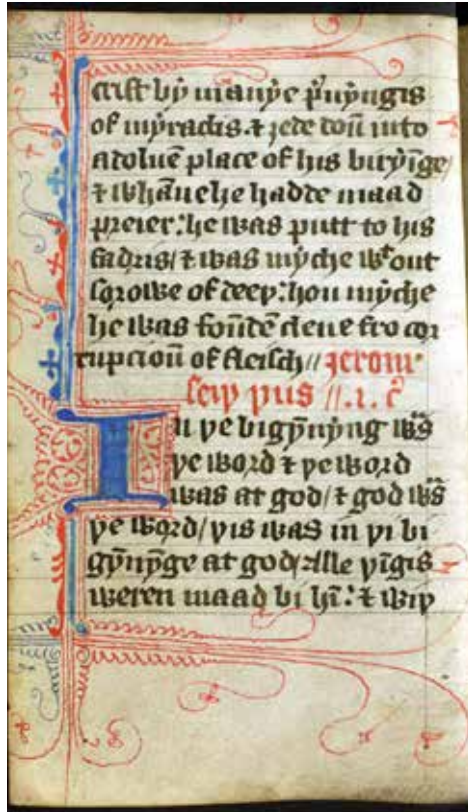 crist bi manye p'uyngis
of myraclis. ⁊ ȝede doū into
a doluē place of his buryīge/
⁊ whāne he hadde maad
preier: he was putt to his
fadris/ ⁊ was myche wᵗout
sorowe of deeþ: hou myche
he was foūdē clene fro cor
rupcioū of fleisch// Jerom
seiþ þus //.1. c̄
In þe bigynnyng was
þe word ⁊ þe word
was at god/ ⁊ god was
þe word/ þis was in þi bi
gynnynge at god/ Alle þīgis
weren maad bi hī: ⁊ wiþ